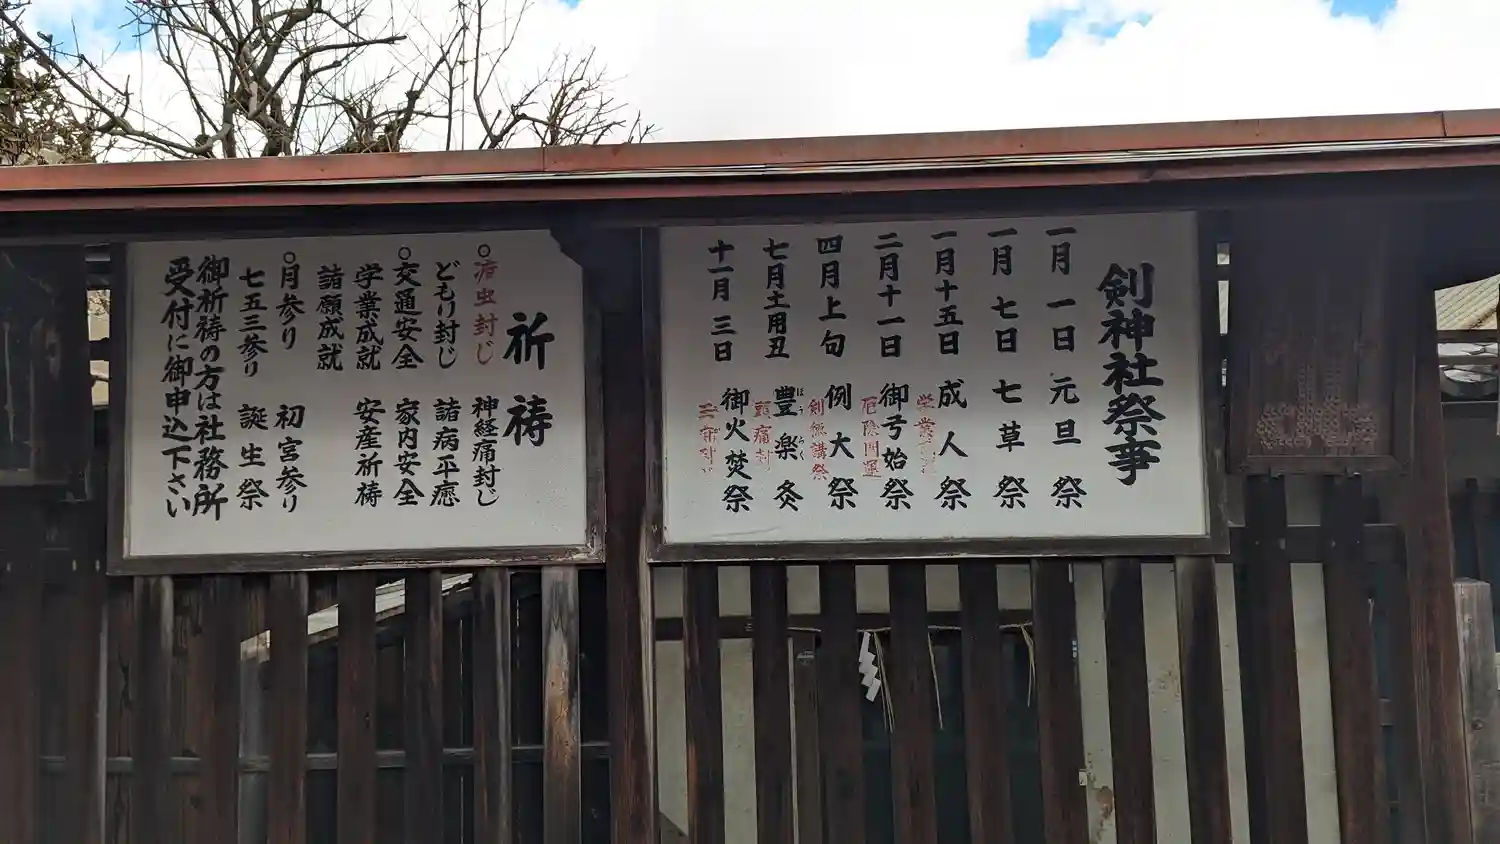 剣神社祭事
一月一日 元旦祭
一月七日 七草祭
一月十五日 成人祭
学業
二月十一日 御弓始祭
厄除開運
四月上旬 例大祭
剣無講祭
七月土用丑 豊楽灸
ほうらく
頭痛封
十一月三日 御火焚祭
祈祷
○疳虫封じ 神経痛封じ
どもり封じ 諸病平癒
○交通安全 家内安全
学業成就 安産祈祷
諸願成就
○月参り 初宮参り
七五三参り 誕生祭
御祈祷の方は社務所
受付に御申込下さい